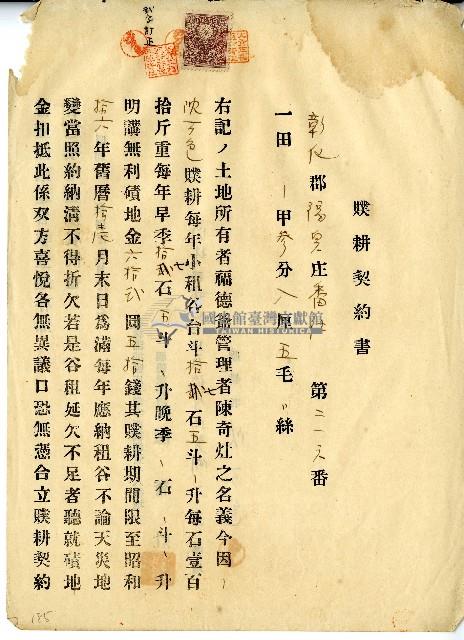 贌耕契約書
彰化郡陽庄番 第二一六番
一田 一甲參分入厘五毛〃絲
右記ノ土地所有者福德爺管理者陳奇灶之名義今因
沈 色贌耕每年小租谷台斗拾貳石五斗 升每石壹百
拾斤重每年早季拾貳石五斗 升晚季 石 斗 升
明講無利磧地金六拾貳圓五拾錢其贌耕期間限至昭和
拾六年舊曆拾壹月末日為滿每年應納租谷不論天災地
變當照約納清不得折欠若是谷租延欠不足者聽就磧地
金扣抵此係双方喜悅各無異議口恐無憑合立贌耕契約
國史館臺灣文獻館
TAIWAN HISTORICA
185